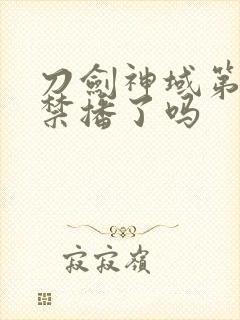 刀劍神域第
禁播了吗
寂寂嶺